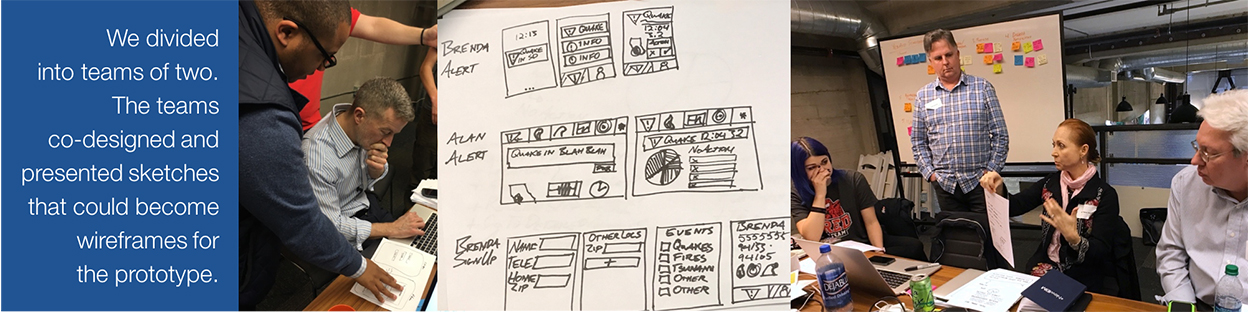 We divided
into teams of two.
The teams
co-designed and
presented sketches
that could become
wireframes for
the prototype.
BRENDA
ALERT
12:13
QUAKE
IN SD
...
QUAKE
INFO
INFO
QUAKE
12:04
3.2
ALAN
ALERT
QUAKE IN BLAH BLAH
QUAKE 12:04 3.2
BRENDA
SIGNUP
NAME
TELE
HOME
ZIP
OTHER LOCS
ZIP
+
EVENTS
QUAKES
FIRES
TSUNAMI
OTHER
OTHER
BRENDA
94105